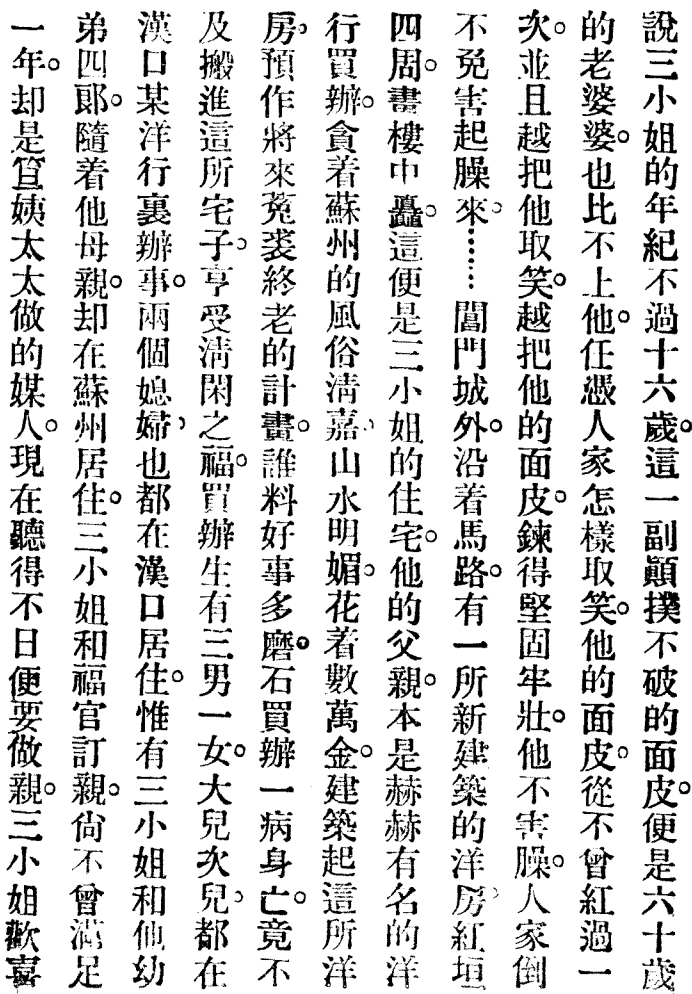 說三小姐的年紀不過十六歲。這一副顚撲不破的面皮。便是六十歲
的老婆婆。也比不上他。任憑人家怎樣取笑。他的面皮。從不曾紅過一
次。並且越把他取笑。越把他的面皮。鍊得堅固牢壯。他不害臊。人家倒
不免害起臊來。……閶門城外。沿着馬路。有一所新建築的洋房、紅垣
四周。畫樓中矗。這便是三小姐的住宅。他的父親。本是赫赫有名的洋
行買辦。貪着蘇州的風俗淸嘉、山水明媚。花着數萬金。建築起這所洋
房。預作將來菟裘終老的計畫。誰料好事多磨。石買辦一病身亡。竟不
及搬進這所宅子。享受淸閑之福。買辦生有三男一女。大兒次兒。都在
漢口某洋行裏辦事。兩個媳婦、也都在漢口居住。惟有三小姐和他幼
弟四郞。隨着他母親。却在蘇州居住。三小姐和福官訂親。尙不曾滿足
一年。却是笪姨太太做的媒人。現在聽得不日便要做親。三小姐歡喜